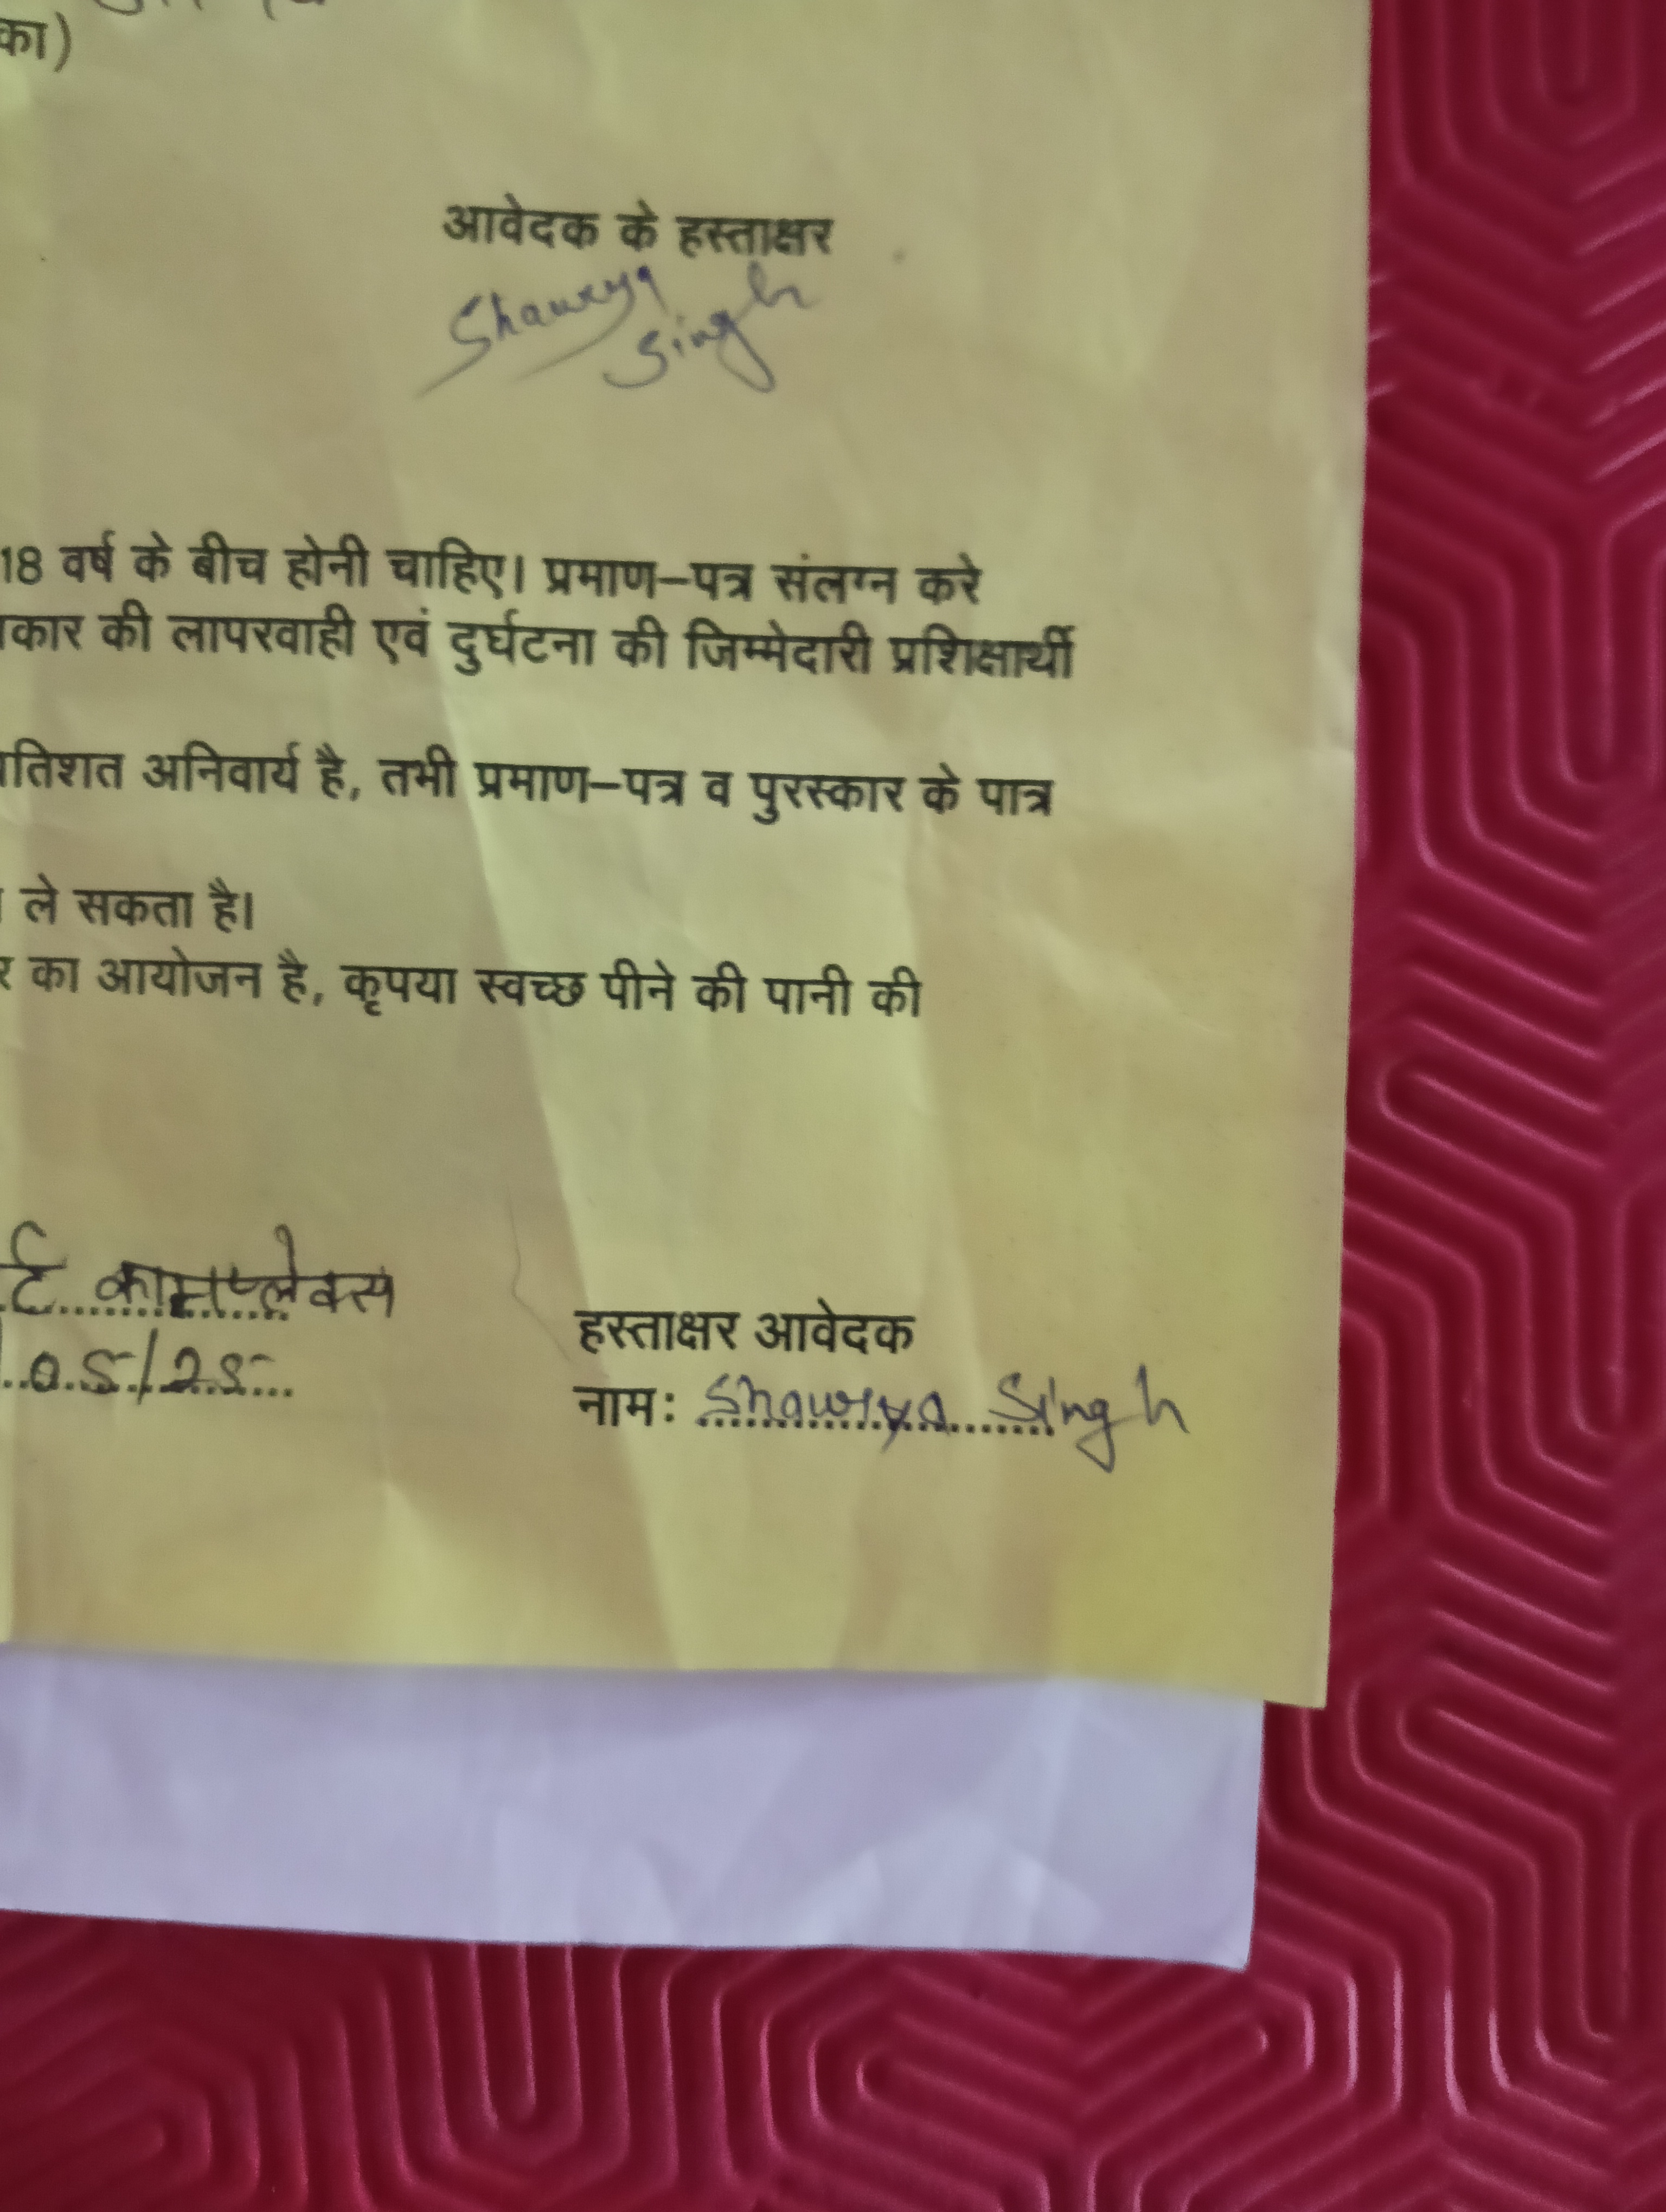 का)
आवेदक के हस्ताक्षर
Shaurya
Singh
18 वर्ष के बीच होनी चाहिए। प्रमाण-पत्र संलग्न करे
कार की लापरवाही एवं दुर्घटना की जिम्मेदारी प्रशिक्षार्थी
तिशत अनिवार्य है, तभी प्रमाण-पत्र व पुरस्कार के पात्र
ले सकता है।
र का आयोजन है, कृपया स्वच्छ पीने की पानी की
र्ट काम्पलेक्स
05/25
हस्ताक्षर आवेदक
नामः Shaurya Singh